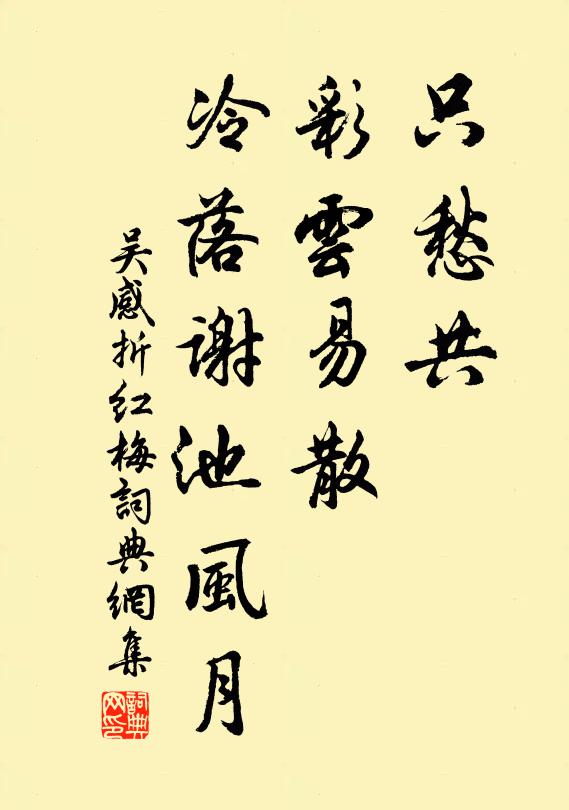 只愁共
彩雲易散
冷落謝池風月
吴感折红梅詞典網集
詞典网印